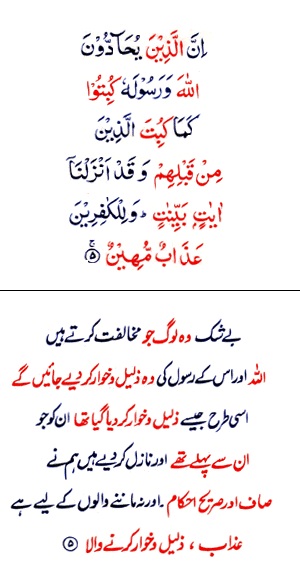 اِنَّ الَّذِيْنَ يُحَآدُّوْنَ
اللّٰهَ وَرَسُوْلَهٗ كُبِتُوْا
كَمَا كُبِتَ الَّذِيْنَ
مِنْ قَبْلِهِمْ وَ قَدْ اَنْزَلْنَاۤ
اٰيٰتٍۭ بَيِّنٰتٍ ؕ وَلِلْكٰفِرِيْنَ
عَذَابٌ مُّهِيْنٌ ۚ ﴿۵﴾
بے شک وہ لوگ جو مخالفت کرتے ہیں
اللہ اور اس کے رسول کی وہ ذلیل و خوار کر دیے جائیں گے
اسی طرح جیسے ذلیل و خوار کر دیا گیا تھا ان کو جو
ان سے پہلے تھے اور نازل کر دیے ہیں ہم نے
صاف اور صریح احکام۔ اور نہ ماننے والوں کے لیے ہے
عذاب، ذلیل و خوار کرنے والا ﴿۵﴾